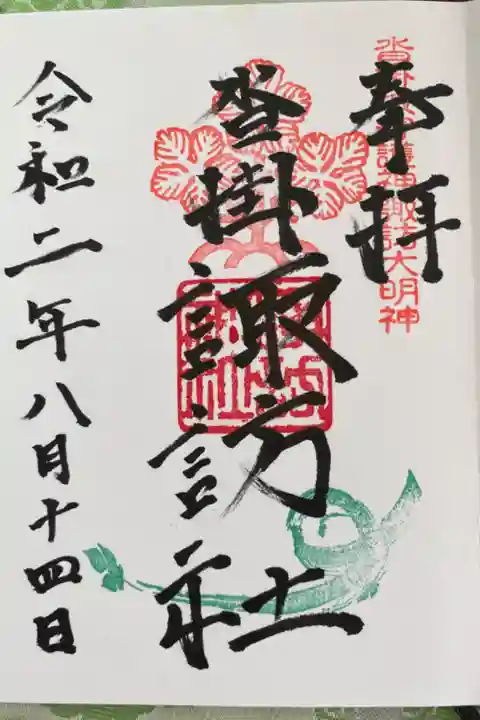 奉拝
守護神諏訪大明神
沓掛諏訪社
諏訪社
令和二年八月十四日